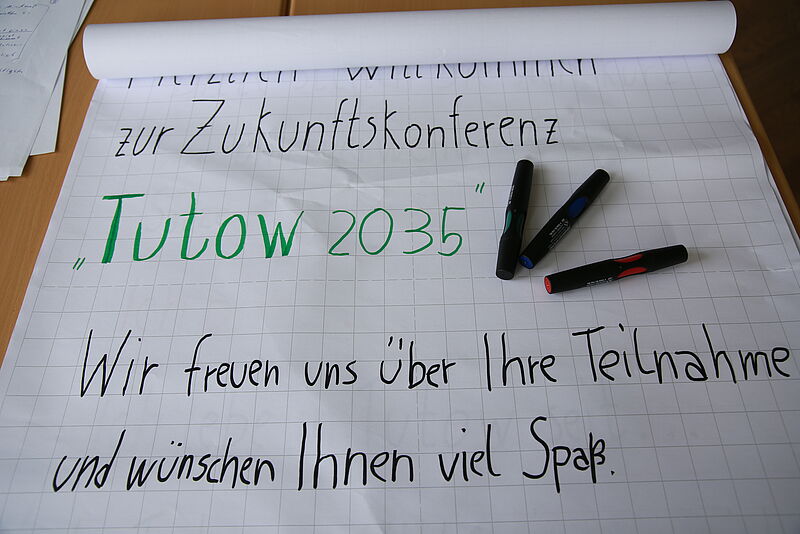 Herzlich Willkommen
zur Zukunftskonferenz
„Tutow 2035"
Wir freuen uns über Ihre Teilnahme
und wünschen Ihnen viel Spaß.